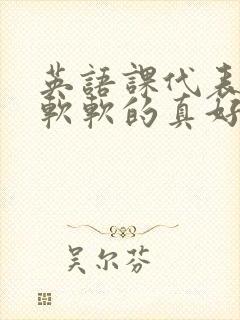 英語課代表
軟軟的真好
吴尔芬